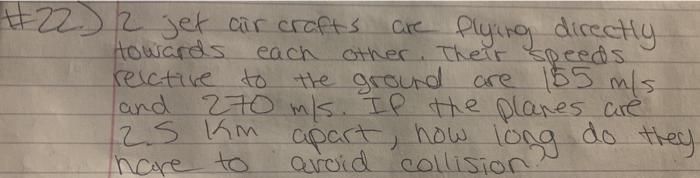 #22.) 2 jet air crafts are flying directly
towards each other. Their speeds
relative to the ground are 155 m/s
and 270 m/s. If the planes are
2.5 Km apart, how long do they
have to avoid collision?